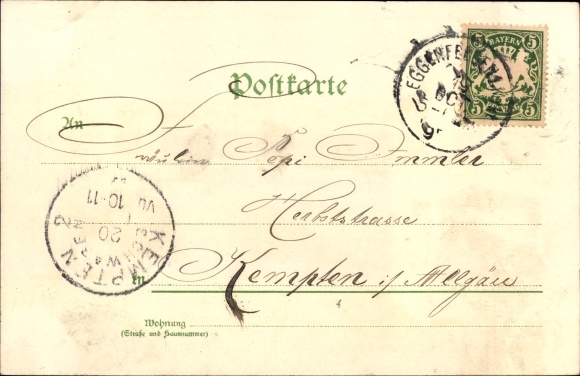 Postkarte
BAYERN
5 5
5 5
EGGENFELDEN
An
Fräulein Pepi Immler
Herbststrasse
in Kempten i/Allgäu
KEMPTEN
20
10-11
Wohnung
(Straße und Hausnummer)
4